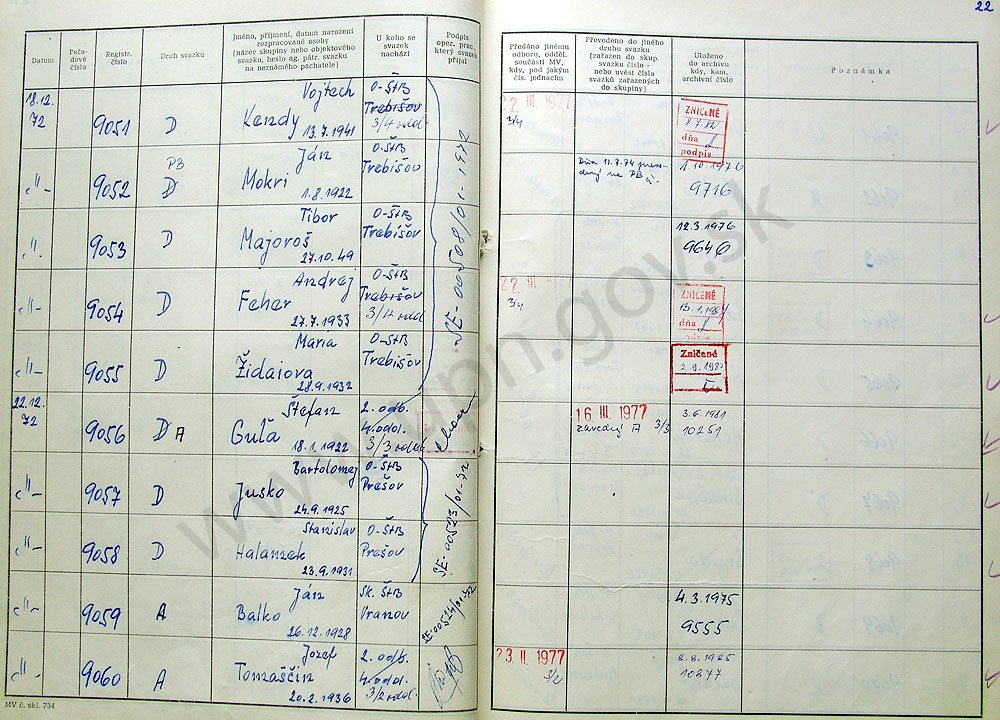 22
Datum
Pořa-
dové
číslo
Registr.
číslo
Druh svazku
Jméno, příjmení, datum narození
rozpracované osoby
(název skupiny nebo objektového
svazku, heslo ag. pátr. svazku
na neznámého pachatele)
U koho se
svazek
nachází
Podpis
oper. prac.,
který svazek
přijal
Předáno jinému
odboru, odděl.
součásti MV,
kdy, pod jakým
čís. jednacím
Převedeno do jiného
druhu svazku
(zařazen do skup.
svazku číslo -
nebo uvést čísla
svazků zařazených
do skupiny)
Uloženo
do archívu
kdy, kam,
archivní číslo
Poznámka
18.12.
72
9051
D
Vojtech
Kendy
13.7.1941
O-ŠtB
Trebišov
3/4 odd.
22. III. 1977
3/4
ZNIČENÉ
dňa
podpis
"
9052
PB
D
Ján
Mokri
1.8.1922
O-ŠtB
Trebišov
Dňa 11.7.74 preve-
dený na PB
1.10.1976
9716
"
9053
D
Tibor
Majoroš
27.10.49
O-ŠtB
Trebišov
12.3.1976
9640
"
9054
D
Andrej
Feher
27.7.1933
O-ŠtB
Trebišov
3/4 odd
22. III.
3/4
ZNIČENÉ
dňa
"
9055
D
Maria
Židaiova
28.9.1932
O-ŠtB
Trebišov
Zničené
SE-00508/01-1972
22.12.
72
9056
D A
Štefan
Guľa
18.1.1922
2. odb.
4. odd.
3/3 odd
16. III. 1977
zavedený A 3/3
3.6.1981
10251
"
9057
D
Bartolomej
Jusko
24.9.1925
O-ŠtB
Prešov
"
9058
D
Stanislav
Halanzek
23.9.1931
O-ŠtB
Prešov
SE-00523/01-72
"
9059
A
Ján
Balko
26.12.1928
Sk. ŠtB
Vranov
SE-00524/01-72
4.3.1975
9555
"
9060
A
Jozef
Tomaščin
20.2.1936
2. odb.
4. odd.
3/2 odd.
23. II. 1977
3/2
8.8.1985
10877
MV č. skl. 734
www.upn.gov.sk